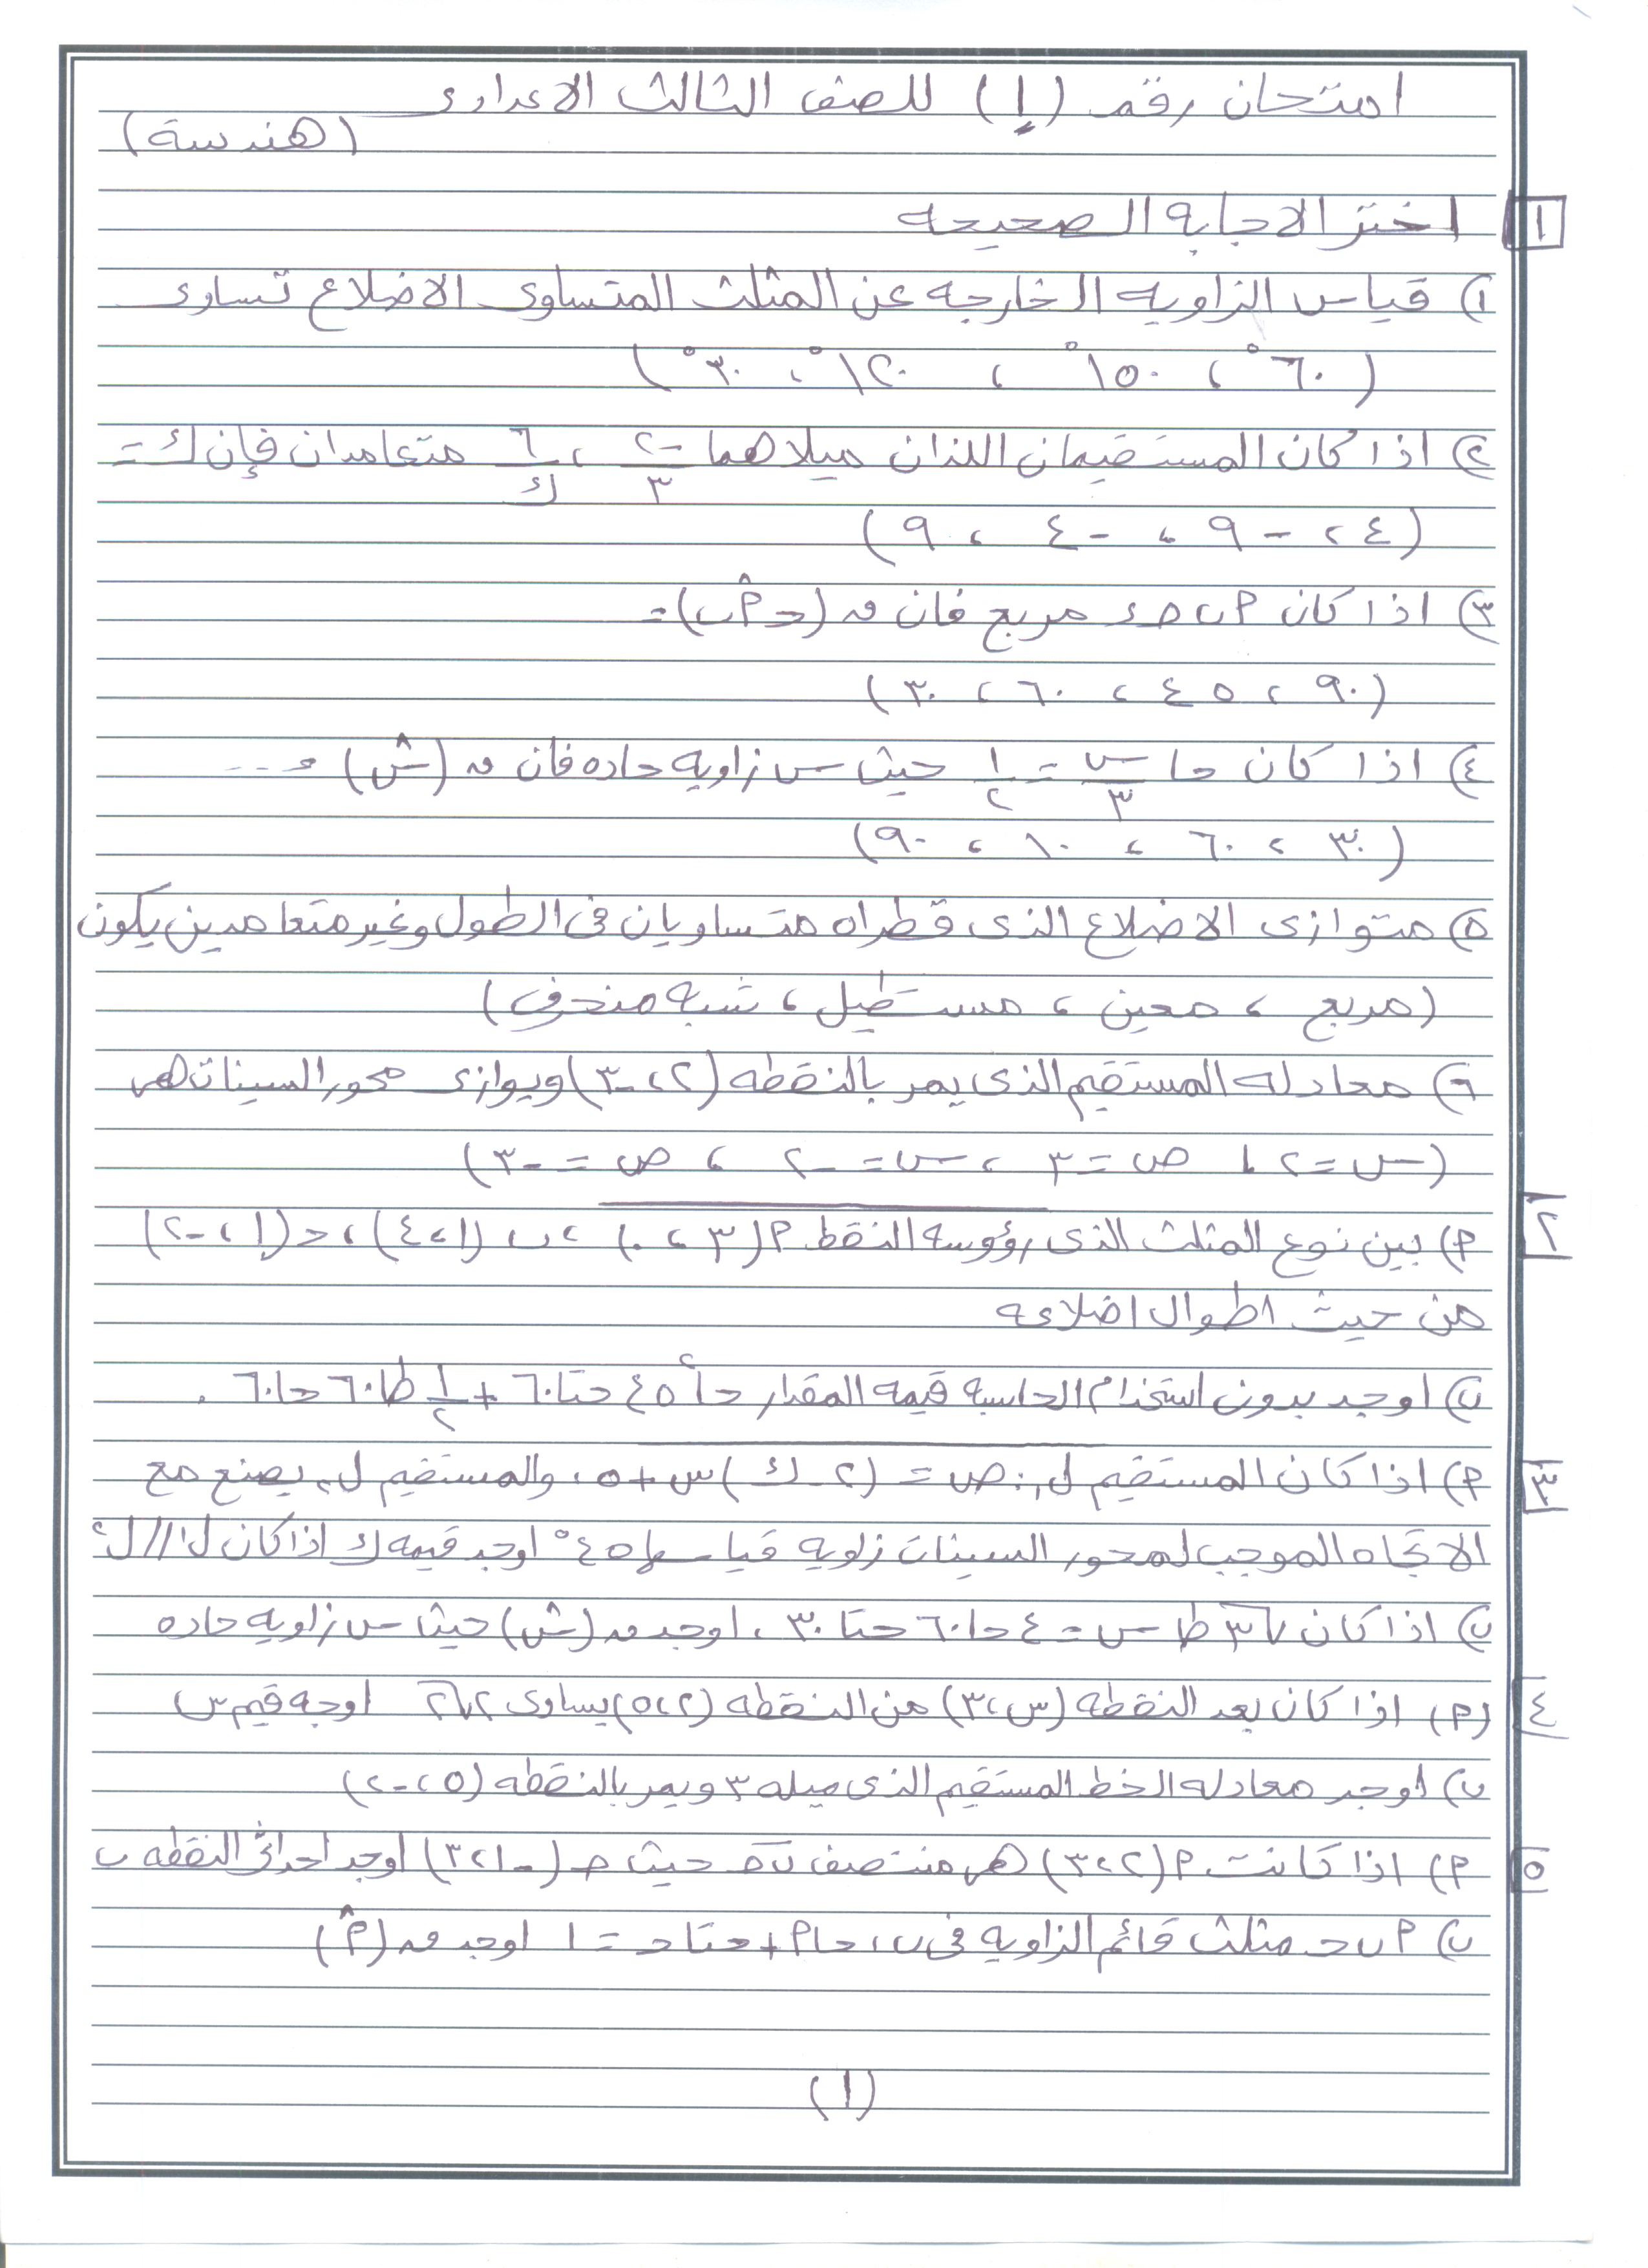 امتحان رقم (١) للصف الثالث الاعدادى
(هندسة)
١ اختر الاجابه الصحيحه
١) قياس الزاويه الخارجه عن المثلث المتساوى الاضلاع تساوى
(٦٠° ، ١٥٠° ، ١٢٠° ، ٣٠°)
٢) اذا كان المستقيمان اللذان ميلاهما -٢/٣ ، ٦/ك متعامدان فإن ك =
(٤ ، -٩ ، -٤ ، ٩)
٣) اذا كان ٩ ب ح ء مربع فان ق (ح٩̂ب) =
(٩٠ ، ٤٥ ، ٦٠ ، ٣٠)
٤) اذا كان حا س/٣ = ١/٢ حيث س زاويه حاده فان ق (س̂) = ...
(٣٠ ، ٦٠ ، ١٠ ، ٩٠)
٥) متوازى الاضلاع الذى قطراه متساويان فى الطول وغير متعامدين يكون
(مربع ، معين ، مستطيل ، شبه منحرف)
٦) معادله المستقيم الذى يمر بالنقطه (٢ ، -٣) ويوازى محور السينات هى
(س = ٢ ، ص = ٣ ، س = -٢ ، ص = -٣)
٢ ٩) بين نوع المثلث الذى رؤوسه النقط ٩(٣ ، ٠) ، ب (١ ، ٤) ، ح (١ ، -٢)
من حيث اطوال اضلاعه
ب) اوجد بدون استخدام الحاسبه قيمه المقدار حا٢ ٤٥ حتا ٦٠ + ١/٢ طا ٦٠ حا ٦٠ .
٣ ٩) اذا كان المستقيم ل١ : ص = (٢ - ك) س + ٥ ، والمستقيم ل٢ يصنع مع
الاتجاه الموجب لمحور السينات زاويه قياسها ٤٥° اوجد قيمه ك اذا كان ل١ // ل٢
ب) اذا كان √٣ طا س = ٤ حا ٦٠ حتا ٣٠ ، اوجد ق (س̂) حيث س زاويه حاده
٤ ٩) اذا كان بعد النقطه (س ، ٣) من النقطه (٢ ، ٥) يساوى ٢√٢ اوجد قيم س
ب) اوجد معادله الخط المستقيم الذى ميله ٣ ويمر بالنقطه (٥ ، -٢)
٥ ٩) اذا كانت ٩(٢ ، ٣) هى منتصف ب ح حيث ح (-١ ، ٣) اوجد احداثى النقطه ب
ب) ٩ ب ح مثلث قائم الزاويه فى ب ، حا ٩ + حتا ح = ١ اوجد ق (٩̂)
(١)